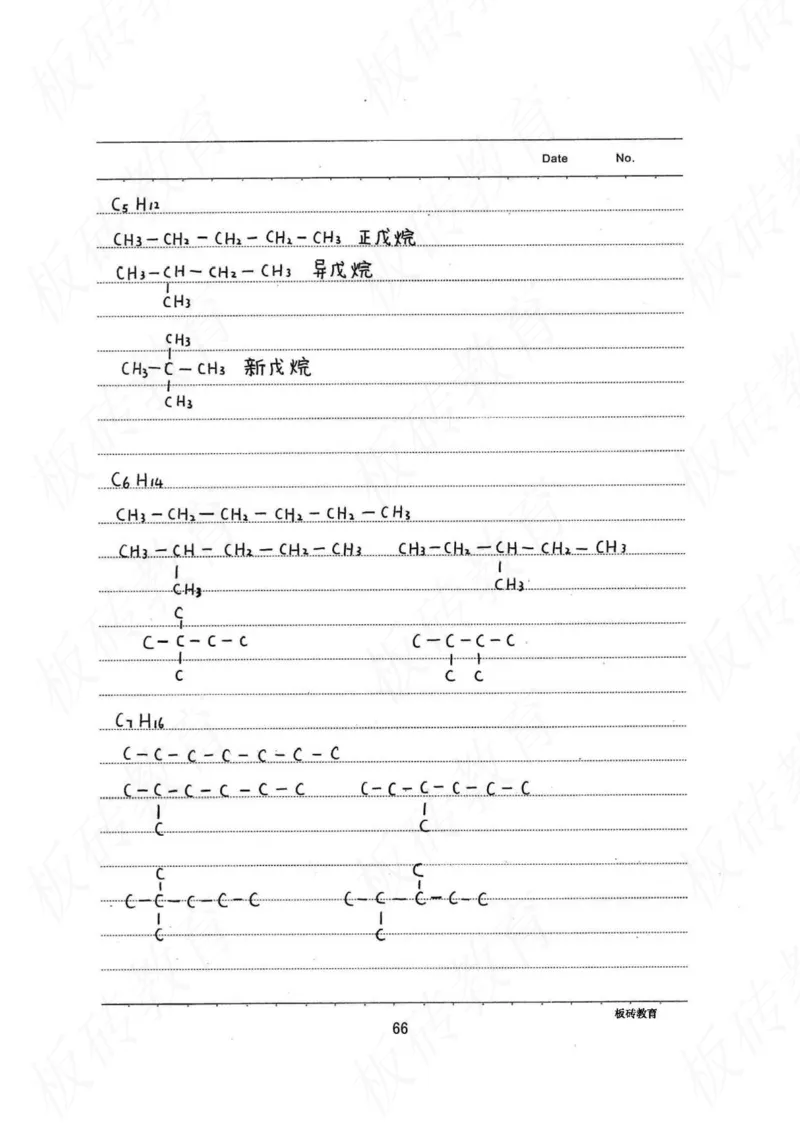 Date No.
C5 H12
CH3－CH2－CH2－CH2－CH3 正戊烷
CH3－CH－CH2－CH3 异戊烷
|
CH3
CH3
|
CH3－C－CH3 新戊烷
|
CH3
C6 H14
CH3－CH2－CH2－CH2－CH2－CH3
CH3－CH－CH2－CH2－CH3 CH3－CH2－CH－CH2－CH3
| |
CH3 CH3
C
|
C－C－C－C C－C－C－C
| | |
C C C
C7 H16
C－C－C－C－C－C－C
C－C－C－C－C－C C－C－C－C－C－C
| |
C C
C C
| |
C－C－C－C－C C－C－C－C－C
| |
C C
板砖教育
66